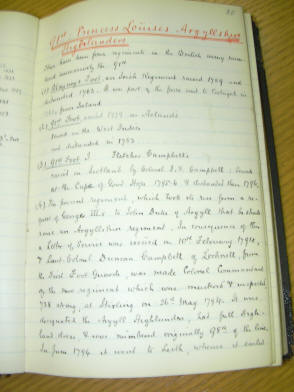 30
91st Princess Louises Argyllshire
Highlanders
There have been four regiments in the British army num-
bered successively the 91st
(1) 91st Foot, an Irish Regiment raised 1759 and
disbanded 1763. It was part of the force sent to Portugal in
1762 from Ireland
(2) 91st Foot, raised 1779 in Midlands
Served in the West Indies
and disbanded in 1783
(3) 91st Foot Fletcher Campbell
raised in Scotland by Colonel F. Campbell, served
at the Cape of Good Hope 1795-6 & disbanded there 1796
(4) The present regiment, which took its rise from a re-
quest of George III to John Duke of Argyll that he should
raise an Argyllshire regiment. In consequence of this
a Letter of Service was issued on 10th February 1794,
& Lieut-Colonel Duncan Campbell of Lochnell, from
the First Foot Guards, was made Colonel Commandant
of the new regiment which was mustered & inspected
738 strong, at Stirling on 26th May 1794. It was
designated the Argyll Highlanders, had full High-
land dress, & was numbered originally 98th of the line.
In June 1794 it went to Leith, whence it sailed